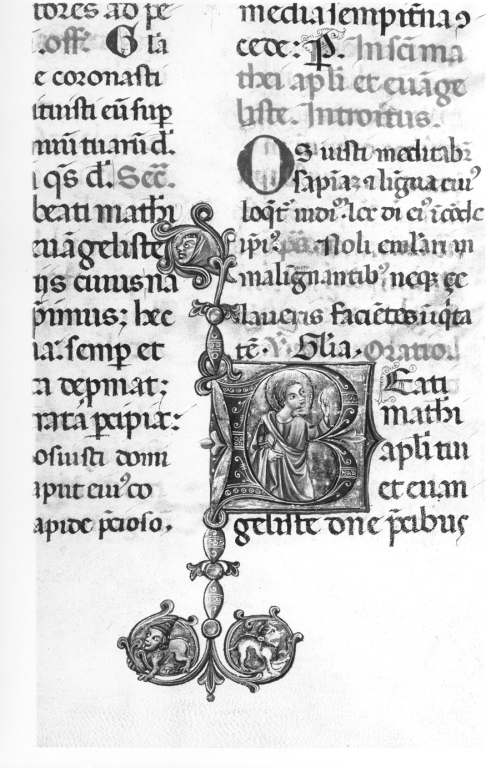 tores ad pe
.off. Gla
e coronasti
ituisti eu sup
nuu tuaru d.
qs d. Secr.
beati mathi
euageliste
ns cuius na
pimus; hec
ua: semp et
ta depmat;
rata pcipia:
osuisti domi
aput eius co
apide pcioso.
media sempitna 9
cede: P. In sci ma
thei apli et euage
liste. Introitus.
Os iusti meditabr
sapia: 7 ligua eius
loqt iudi. lex di ei i corde
ipi. ps. Noli emlari in
malignantib; neqz ze
laueris facietes iiqta
te. V. Glia. Oratio.
Beati
mathi
apli tui
et euan
geliste dne pcibus